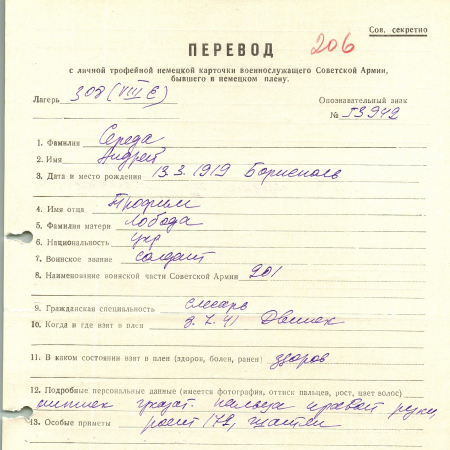 Сов. секретно
ПЕРЕВОД 206
с личной трофейной немецкой карточки военнослужащего Советской Армии,
бывшего в немецком плену.
Лагерь 308 (VIII E) Опознавательный знак
№ 53942
1. Фамилия Середа
2. Имя Андрей
3. Дата и место рождения 13.3.1919 Борисполь
4. Имя отца Трофим
5. Фамилия матери Лобода
6. Национальность укр
7. Воинское звание солдат
8. Наименование воинской части Советской Армии 201
9. Гражданская специальность слесарь
10. Когда и где взят в плен 3.7.41 Двинск
11. В каком состоянии взят в плен (здоров, болен, ранен) здоров
12. Подробные персональные данные (имеется фотография, оттиск пальцев, рост, цвет волос)
оттиск указат. пальца правой руки,
13. Особые приметы рост 172,